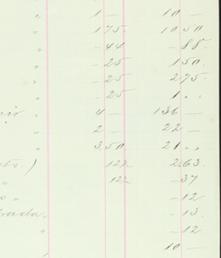 " 1 — 10 —
" 175 10 50
" — 44 — 88
" — 25 150
" — 25 275
" — 25 1 "
" 4 — 136 —
" 2 — 22 —
" 3 50 21 "
122 2 63
" 122 — 37
" — 12
— 13
" — 12
10 —